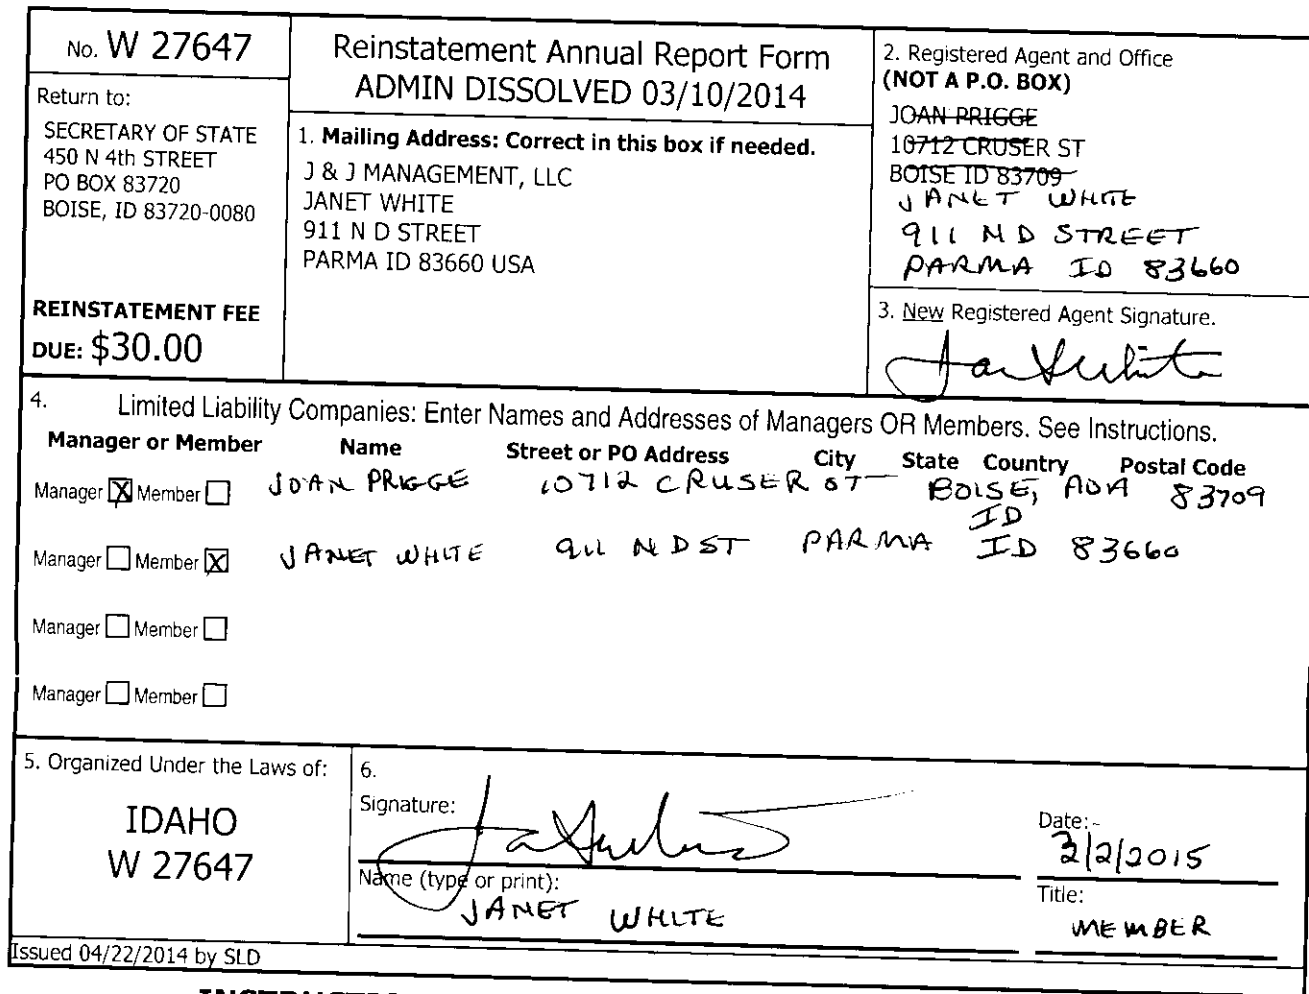 No. W 27647
Return to:
SECRETARY OF STATE
450 N 4th STREET
PO BOX 83720
BOISE, ID 83720-0080
REINSTATEMENT FEE
DUE: $30.00
Reinstatement Annual Report Form
ADMIN DISSOLVED 03/10/2014
1. Mailing Address: Correct in this box if needed.
J & J MANAGEMENT, LLC
JANET WHITE
911 N D STREET
PARMA ID 83660 USA
2. Registered Agent and Office
(NOT A P.O. BOX)
JOAN PRIGGE
10712 CRUSER ST
BOISE ID 83709
JANET WHITE
911 N D STREET
PARMA ID 83660
3. New Registered Agent Signature.
4. Limited Liability Companies: Enter Names and Addresses of Managers OR Members. See Instructions.
Manager or Member Name Street or PO Address City State Country Postal Code
Manager X Member JOAN PRIGGE 10712 CRUSER ST BOISE, ADA 83709
ID
Manager Member X JANET WHITE 911 N D ST PARMA ID 83660
Manager Member
Manager Member
5. Organized Under the Laws of:
IDAHO
W 27647
6.
Signature:
Date:
3/2/2015
Name (type or print):
JANET WHITE
Title:
MEMBER
Issued 04/22/2014 by SLD